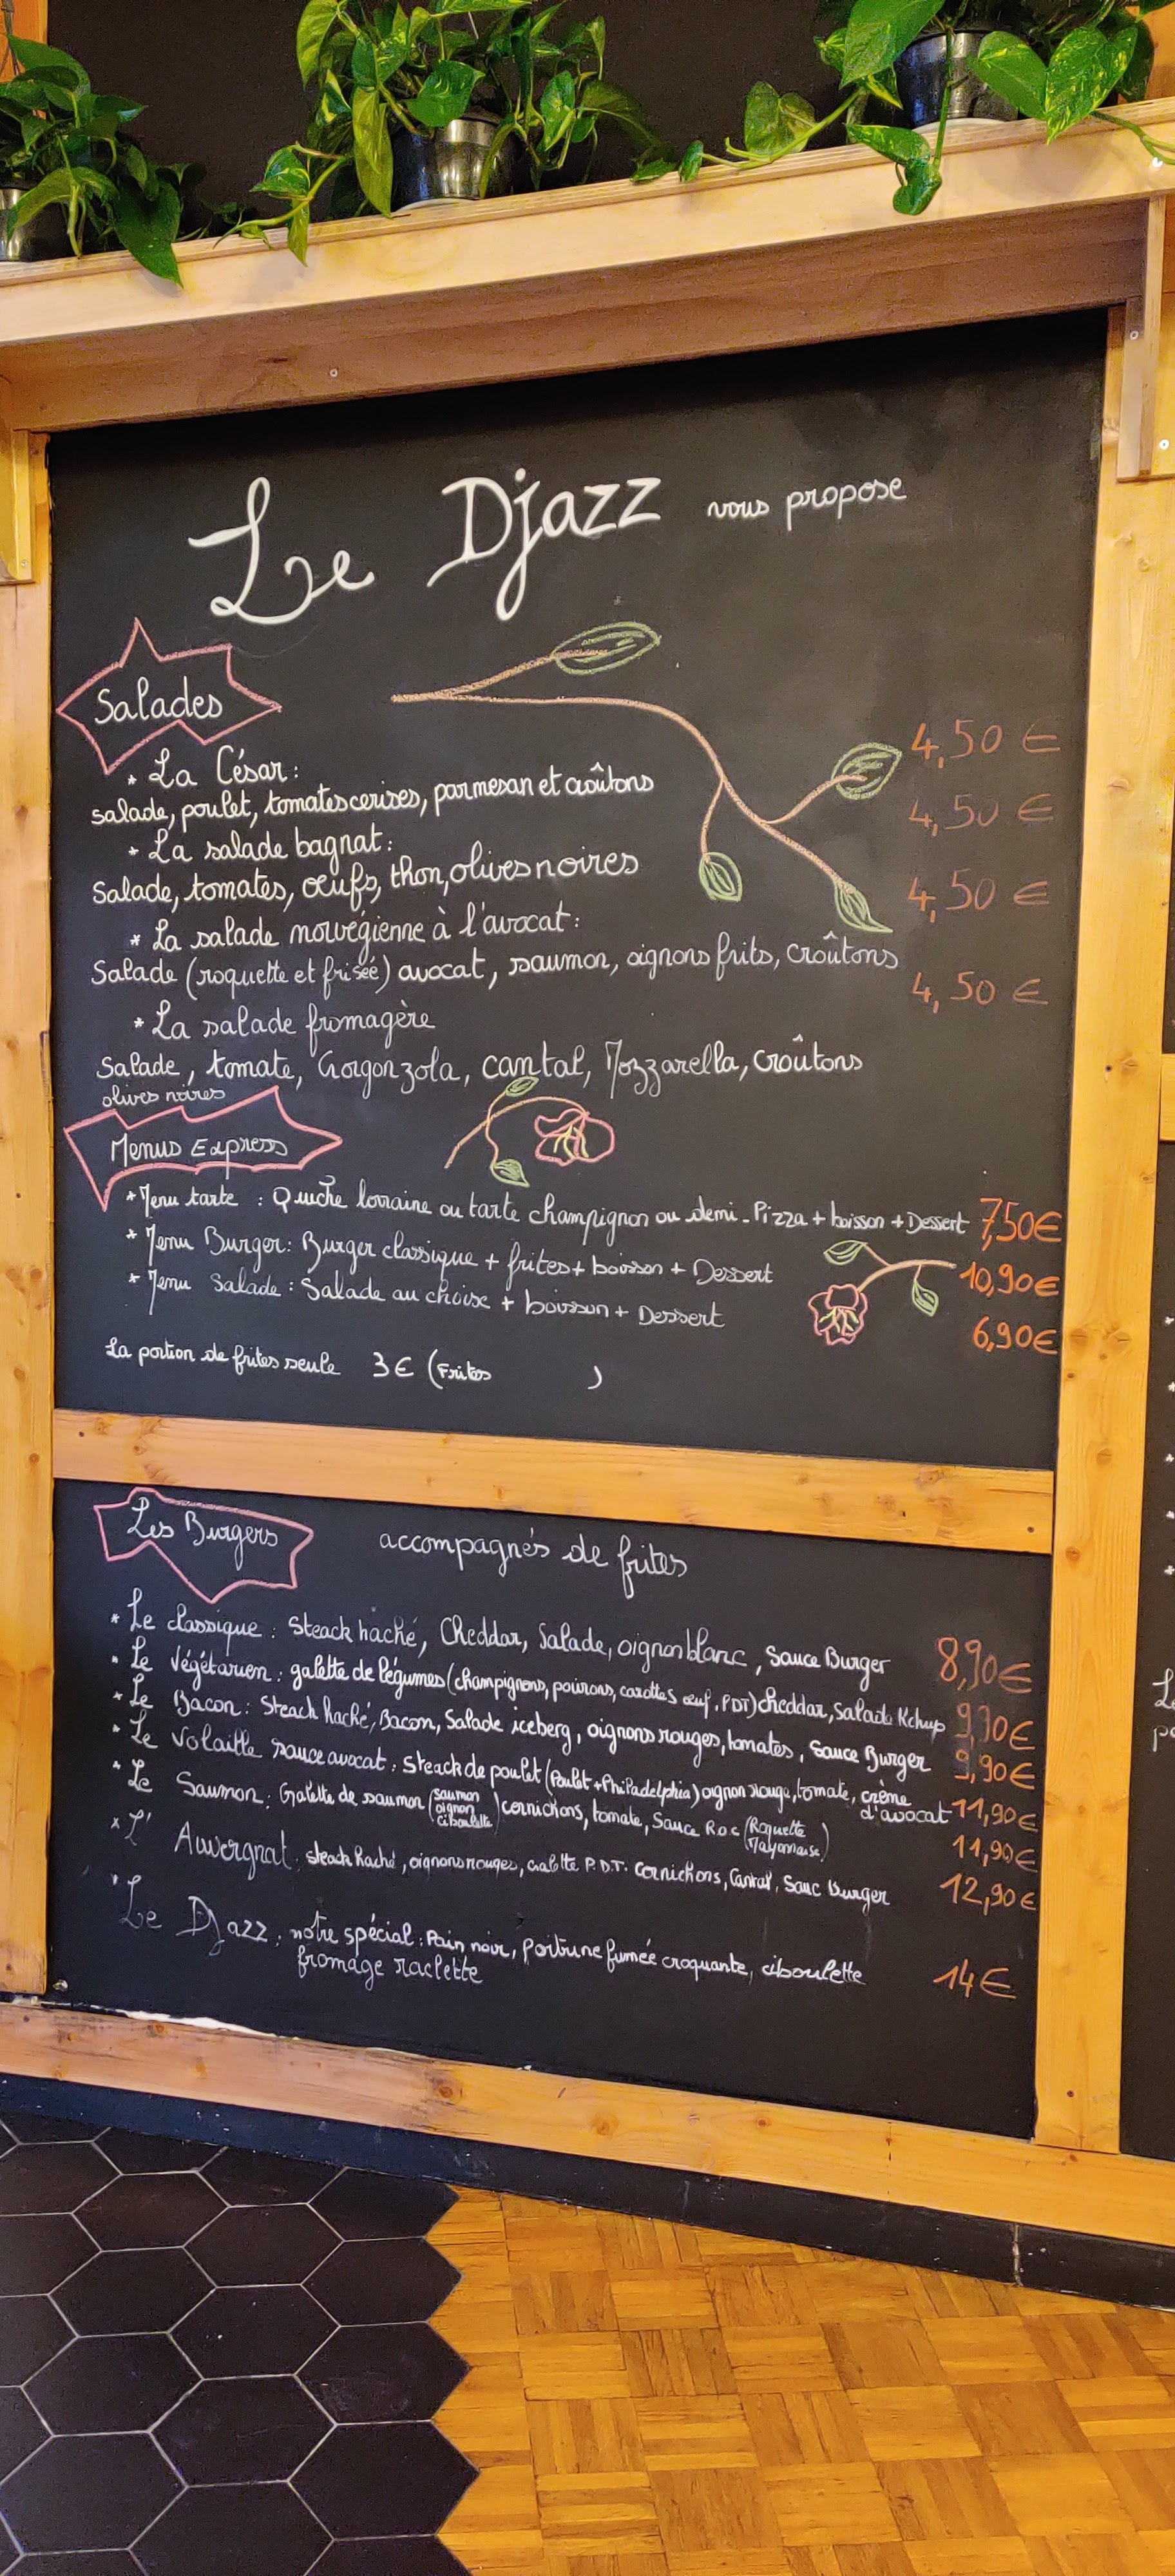 Le Djazz vous propose
Salades
* La César :
4,50 €
salade, poulet, tomates cerises, parmesan et croûtons
* La salade bagnat :
4,50 €
Salade, tomates, œufs, thon, olives noires
* La salade norvégienne à l'avocat :
4,50 €
Salade (roquette et frisée) avocat, saumon, oignons frits, croûtons
* La salade fromagère
4,50 €
Salade, tomate, Gorgonzola, cantal, Mozzarella, croûtons
olives noires
Menus Express
* Menu tarte : Quiche lorraine ou tarte champignon ou demi-Pizza + boisson + Dessert 7,50€
* Menu Burger : Burger classique + frites + boisson + Dessert 10,90€
* Menu Salade : Salade au choix + boisson + Dessert 6,90€
La portion de frites seule 3€ (Frites )
Les Burgers accompagnés de frites
* Le classique : Steack haché, Cheddar, Salade, oignon blanc, Sauce Burger 8,90€
* Le Végétarien : galette de légumes (champignons, poivrons, carottes œuf, PDT) cheddar, Salade Kchup 9,90€
* Le Bacon : Steack haché, Bacon, Salade iceberg, oignons rouges, tomates, Sauce Burger 9,90€
* Le Volaille sauce avocat : Steack de poulet (Poulet + Philadelphia) oignon rouge, tomate, crème d'avocat 11,90€
* Le Saumon : Galette de saumon (saumon oignon ciboulette) cornichons, tomate, Sauce R.o.c (Roquette Mayonnaise) 11,90€
* L' Auvergnat : steack haché, oignons rouges, Galette P.D.T. Cornichons, Cantal, Sauc Burger 12,90€
* Le Djazz : notre spécial : Pain noir, Poitrine fumée croquante, ciboulette 14€
fromage raclette